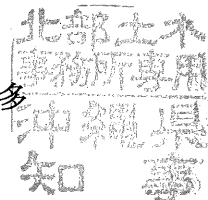 北部土木
事務所専用
多
沖縄県
知事